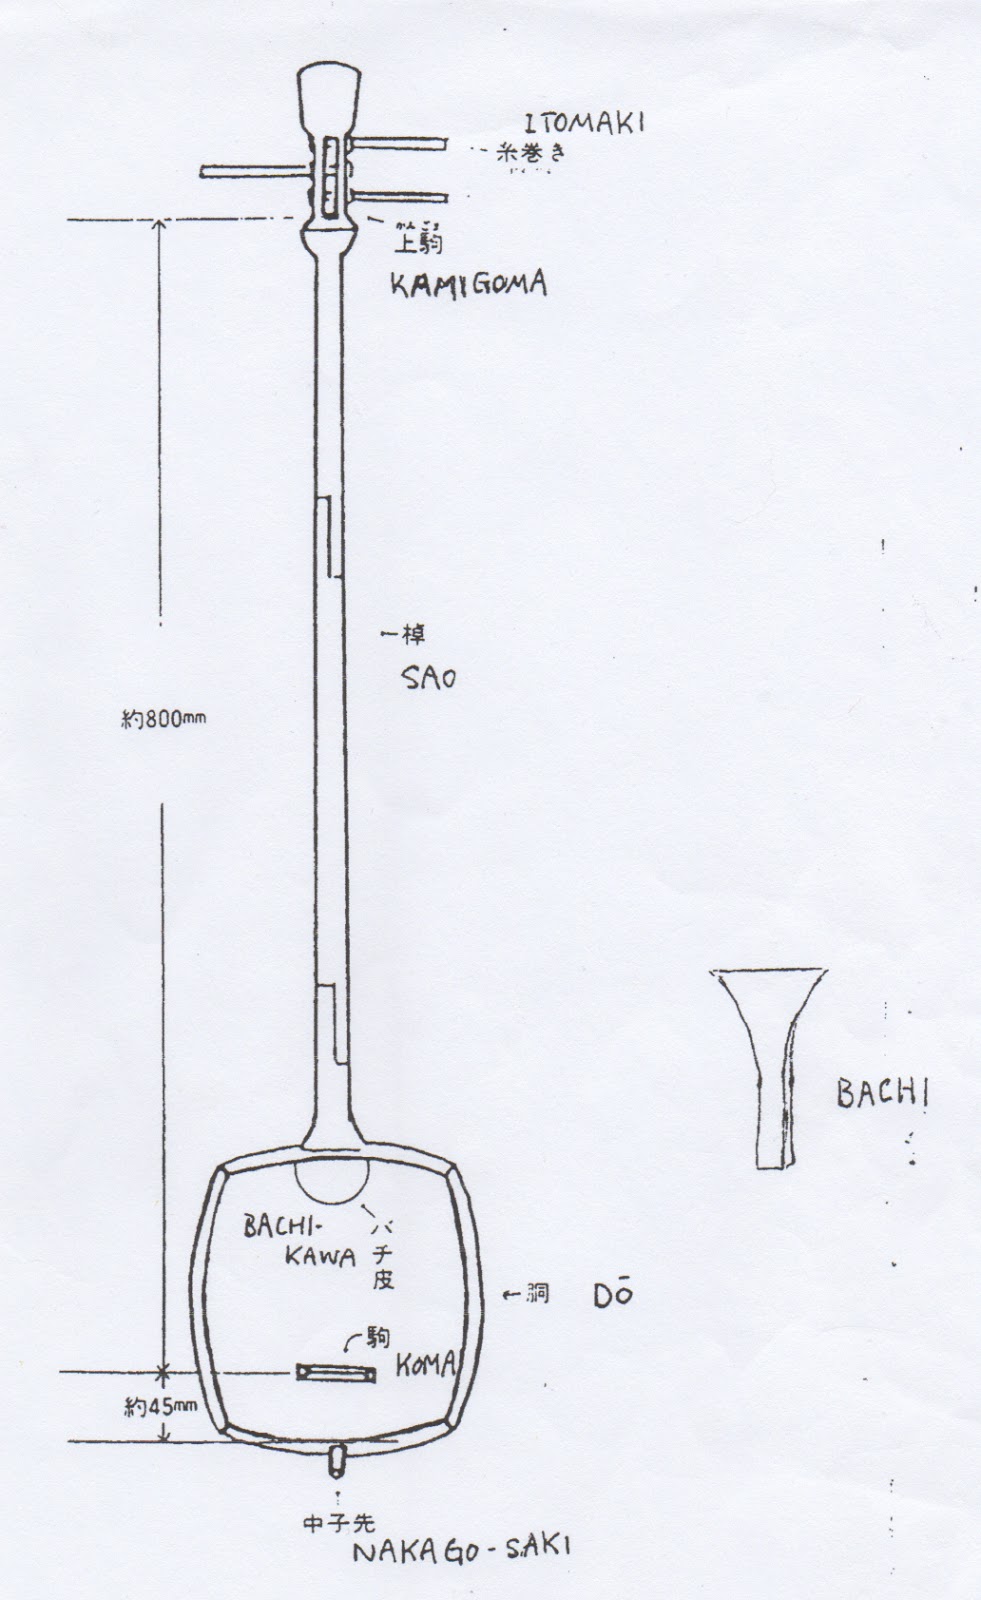 ITOMAKI
糸巻き
上駒
KAMIGOMA
棹
SAO
約800mm
BACHI
BACHI-
KAWA
バチ皮
胴
DŌ
駒
KOMA
約45mm
中子先
NAKAGO-SAKI